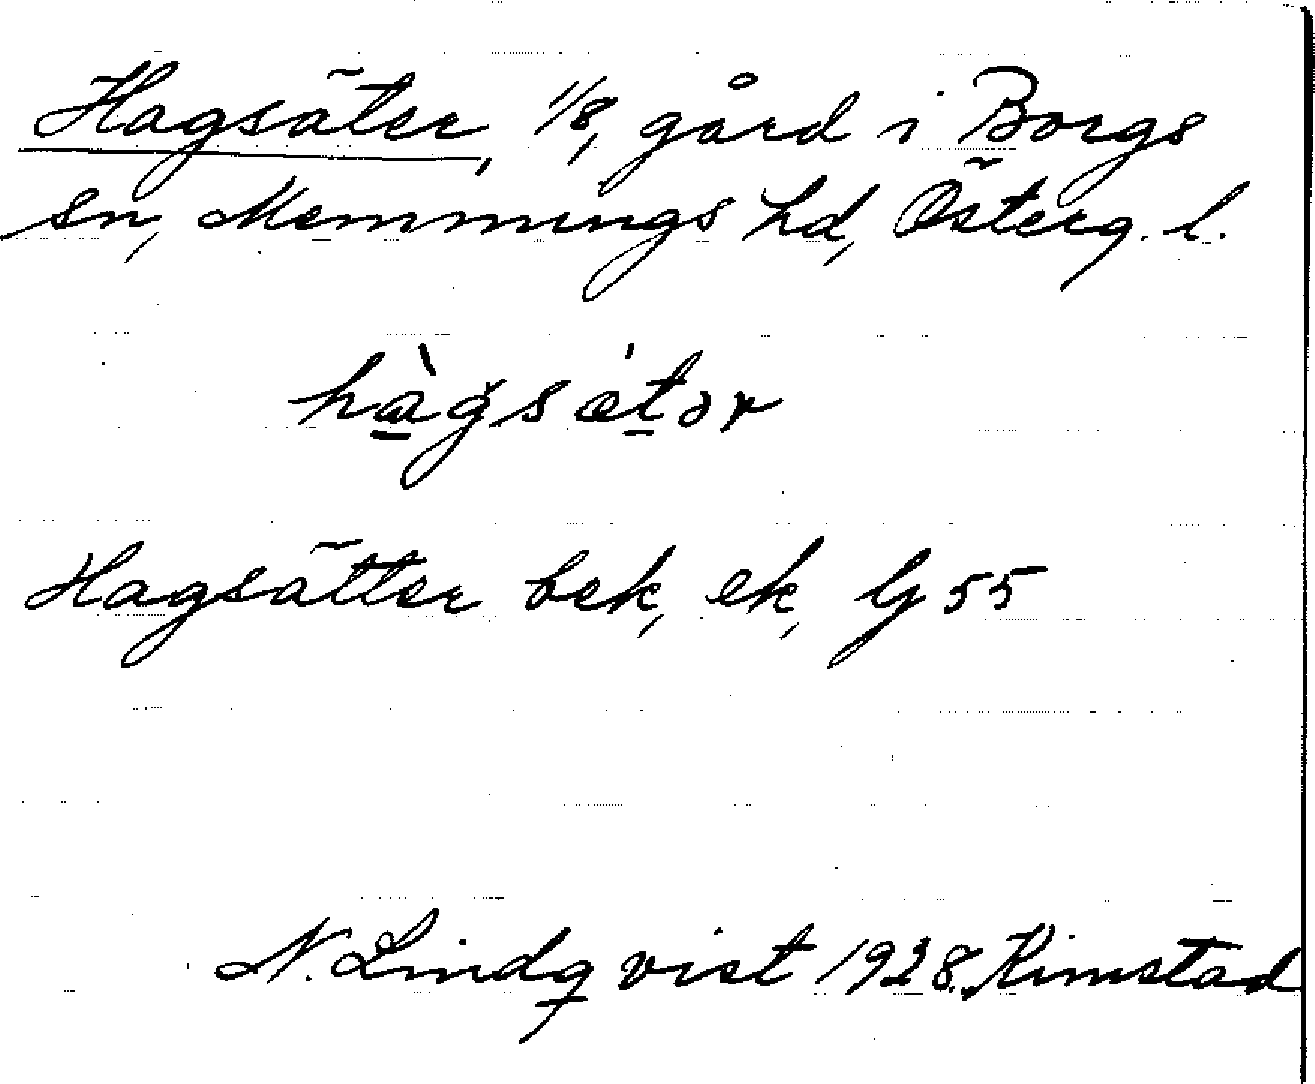 Hagsäter, 1/8, gård i Borgs
sn, Memmings hd, Österg. l.
hàgsætər
Hagsätter bek, ek, Gj 55
N. Lindqvist 1928. Kimstad